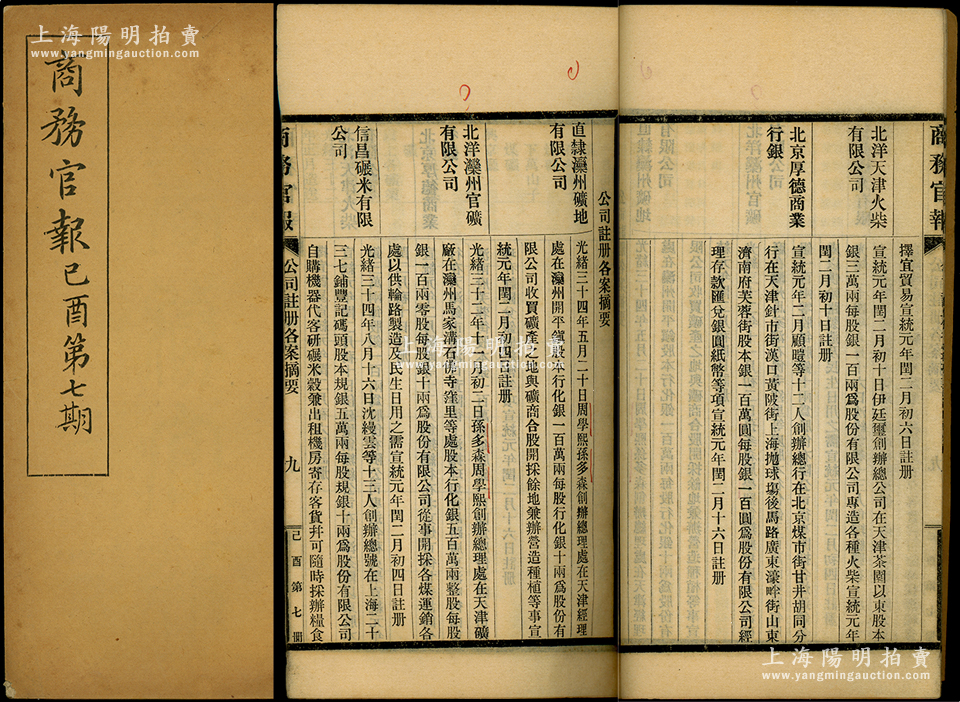 上海陽明拍賣
www.yangmingauction.com
商務官報己酉第七期
公司註册各案摘要
直隸灤州礦地有限公司
光緒三十四年五月二十日周學熙孫多森創辦總理處在天津經理
處在灤州開平鎮股本行化銀一百萬兩每股行化銀十兩爲股份有
限公司收買礦產之地與礦商合股開採餘地兼辦營造種植等事宣
統元年閏二月初四日註册
北洋灤州官礦有限公司
光緒三十二年十一月初二日孫多森周學熙創辦總理處在天津礦
廠在灤州馬家溝石佛寺窪里等處股本行化銀五百萬兩整股每股
銀一百兩零股每股銀十兩爲股份有限公司從事開採各煤運銷各
處以供輪路製造及民生日用之需宣統元年閏二月初四日註册
信昌碾米有限公司
光緒三十四年八月十六日沈縵雲等十三人創辦總號在上海二十
三七鋪豐記碼頭股本規銀五萬兩每股規銀十兩爲股份有限公司
自購機器代客研碾米穀兼出租機房寄存客貨幷可隨時採辦糧食
商務官報
公司註册各案摘要
九
己酉第七期
商務官報
擇宜貿易宣統元年閏二月初六日註册
北洋天津火柴有限公司
宣統元年閏二月初十日伊廷璽創辦總公司在天津茶園以東股本
銀三萬兩每股銀一百兩爲股份有限公司專造各種火柴宣統元年
閏二月初十日註册
北京厚德商業行銀
宣統元年二月顧曀等十二人創辦總行在北京煤市街甘井胡同分
行在天津針市街漢口黃陂街上海拋球場後馬路廣東濠畔街山東
濟南府芙蓉街股本銀一百萬圓每股銀一百圓爲股份有限公司經
理存款匯兌銀圓紙幣等項宣統元年閏二月十六日註册
上海陽明拍賣
www.yangmingauction.com
上海陽明拍賣
www.yangmingauction.com